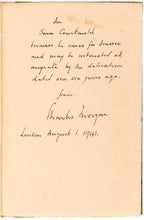 For
Sam Courtauld
because he cares for France
and may be interested at
by the
dated over six years ago.
from
Charles Morgan
London August 1. 1941.